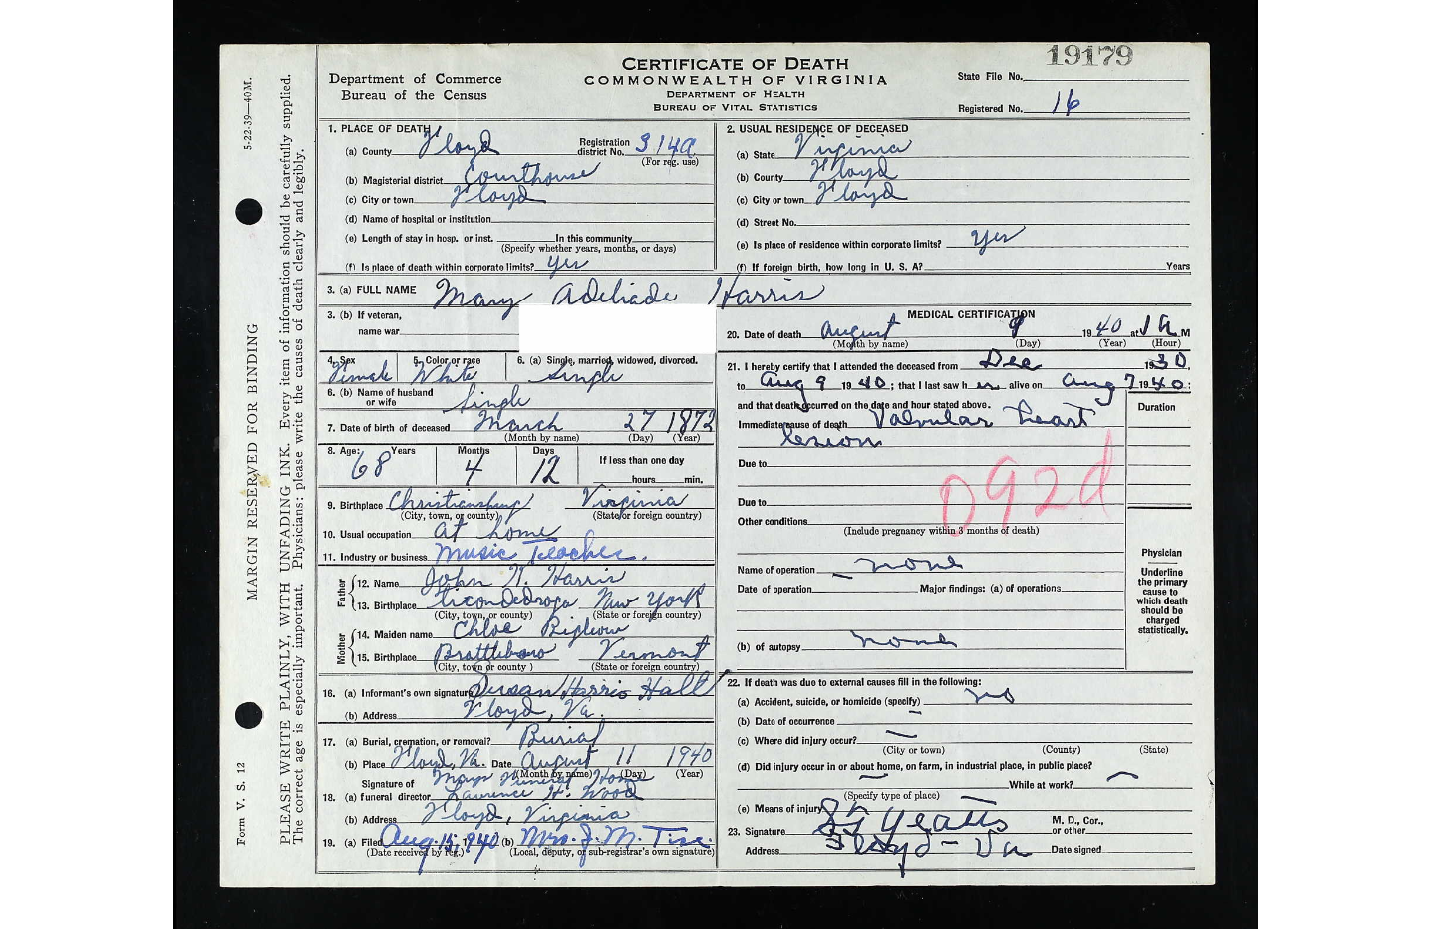 19179
CERTIFICATE OF DEATH
Department of Commerce
Bureau of the Census
COMMONWEALTH OF VIRGINIA
DEPARTMENT OF HEALTH
BUREAU OF VITAL STATISTICS
State File No.
Registered No. 16
5-22-39—40M.
MARGIN RESERVED FOR BINDING
PLEASE WRITE PLAINLY, WITH UNFADING INK. Every item of information should be carefully supplied.
The correct age is especially important. Physicians: please write the causes of death clearly and legibly.
Form V. S. 12
1. PLACE OF DEATH
(a) County Floyd Registration district No. 314a
(For reg. use)
(b) Magisterial district Courthouse
(c) City or town Floyd
(d) Name of hospital or institution
(e) Length of stay in hosp. or inst. In this community
(Specify whether years, months, or days)
(f) Is place of death within corporate limits? yes
2. USUAL RESIDENCE OF DECEASED
(a) State Virginia
(b) County Floyd
(c) City or town Floyd
(d) Street No.
(e) Is place of residence within corporate limits? yes
(f) If foreign birth, how long in U. S. A? Years
3. (a) FULL NAME Mary Adeliade Harris
3. (b) If veteran,
name war
4. Sex 5. Color or race 6. (a) Single, married, widowed, divorced.
Female White Single
6. (b) Name of husband
or wife Single
7. Date of birth of deceased March 27 1872
(Month by name) (Day) (Year)
8. Age: Years Months Days If less than one day
68 4 12 hours min.
9. Birthplace Christiansburg Virginia
(City, town, or county) (State or foreign country)
10. Usual occupation at home
11. Industry or business Music Teacher.
Father
12. Name John Harris
13. Birthplace Ticondedroga New York
(City, town, or county) (State or foreign country)
Mother
14. Maiden name Chloe Biglow
15. Birthplace Brattleboro Vermont
(City, town or county) (State or foreign country)
16. (a) Informant's own signature Susan Harris Hall
(b) Address Floyd, Va.
17. (a) Burial, cremation, or removal? Burial
(b) Place Floyd, Va. Date August 11 1940
(Month by name) (Day) (Year)
Signature of Funeral Home
18. (a) funeral director Lawrence H. Wood
(b) Address Floyd, Virginia
19. (a) Filed Aug. 15, 1940 (b) Mrs. J. M.
(Date received by reg.) (Local, deputy, or sub-registrar's own signature)
MEDICAL CERTIFICATION
20. Date of death August 9 1940 at 1 a M
(Month by name) (Day) (Year) (Hour)
21. I hereby certify that I attended the deceased from Dec 1930,
to Aug 9 1940; that I last saw h er alive on Aug 7 1940;
and that death occurred on the date and hour stated above. Duration
Immediate cause of death Valvular heart
lesion
Due to
092d
Due to
Other conditions
(Include pregnancy within 3 months of death)
Name of operation none
Date of operation Major findings: (a) of operations
(b) of autopsy none
Physician
Underline
the primary
cause to
which death
should be
charged
statistically.
22. If death was due to external causes fill in the following:
(a) Accident, suicide, or homicide (specify) no
(b) Date of occurrence
(c) Where did injury occur?
(City or town) (County) (State)
(d) Did injury occur in or about home, on farm, in industrial place, in public place?
While at work?
(Specify type of place)
(e) Means of injury
23. Signature Yeatts M. D., Cor., or other
Address Floyd - Va Date signed